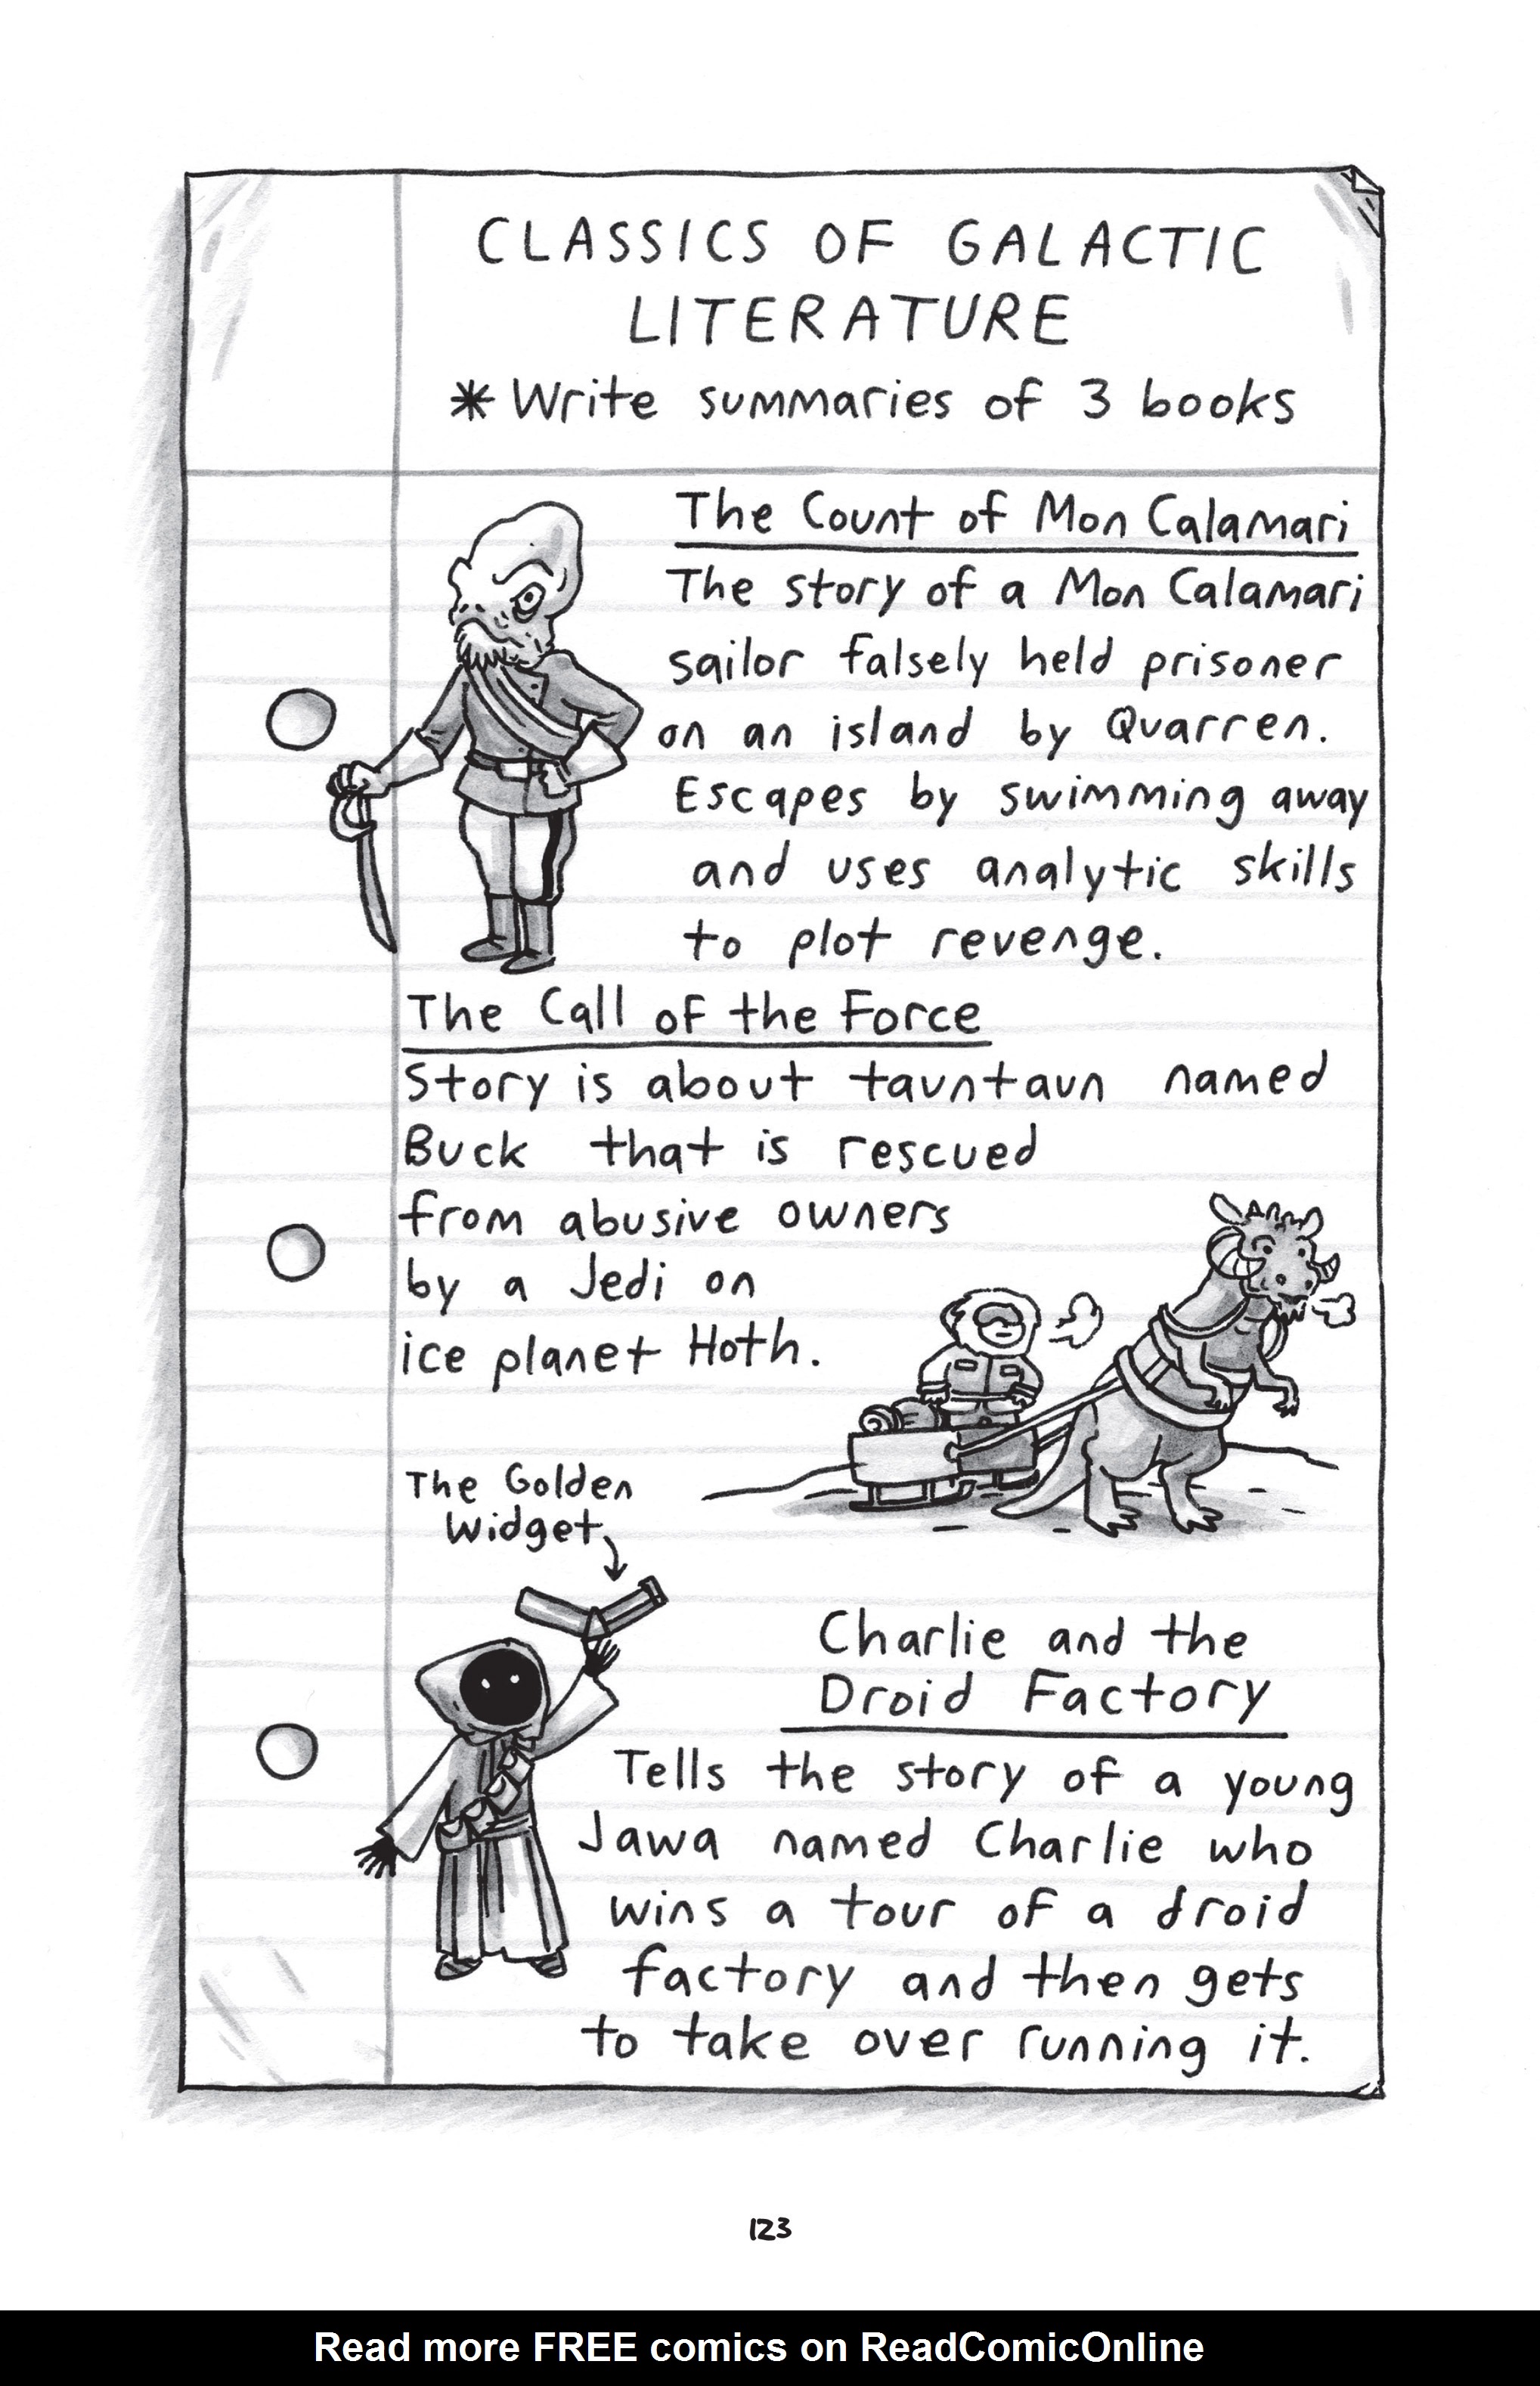 CLASSICS OF GALACTIC
LITERATURE
* Write summaries of 3 books
The Count of Mon Calamari
The story of a Mon Calamari
sailor falsely held prisoner
on an island by Quarren.
Escapes by swimming away
and uses analytic skills
to plot revenge.
The Call of the Force
Story is about tauntaun named
Buck that is rescued
from abusive owners
by a Jedi on
ice planet Hoth.
The Golden
Widget
Charlie and the
Droid Factory
Tells the story of a young
Jawa named Charlie who
wins a tour of a droid
factory and then gets
to take over running it.
123
Read more FREE comics on ReadComicOnline